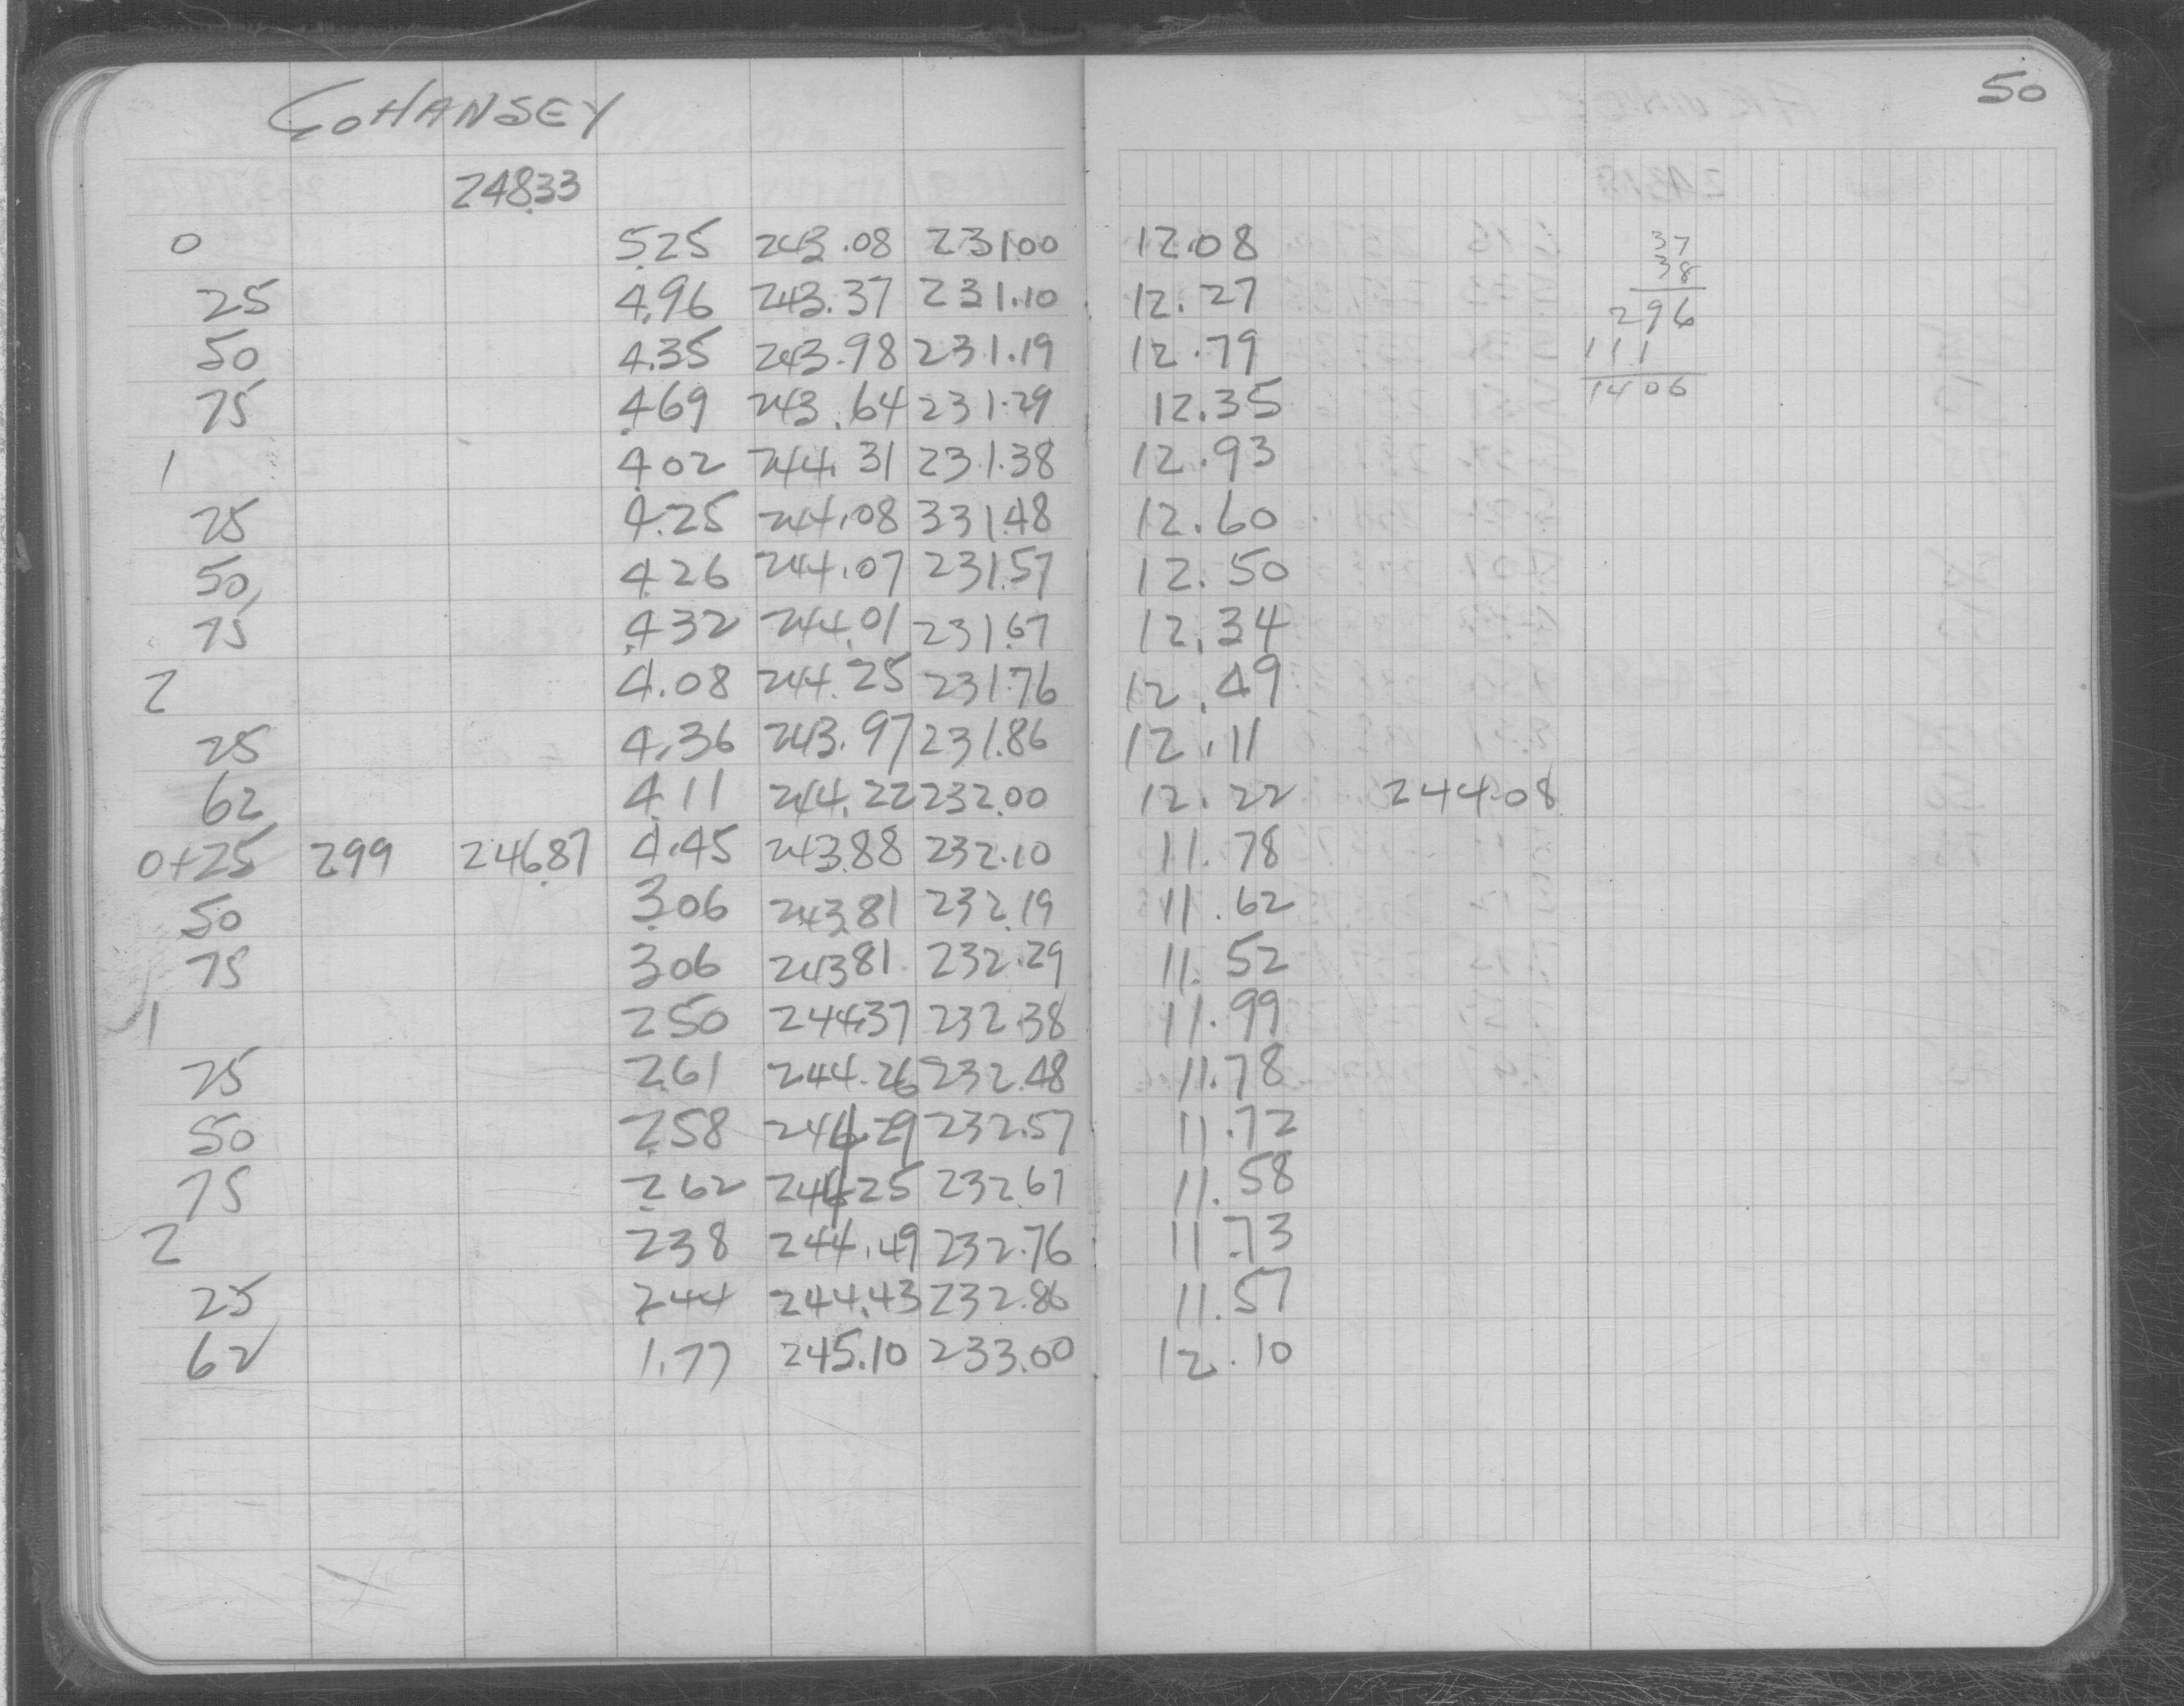 COHANSEY 50
248.33
0 5.25 243.08 231.00 12.08 37
38
25 4.96 243.37 231.10 12.27 296
50 4.35 243.98 231.19 12.79 111
75 4.69 243.64 231.29 12.35 1406
1 4.02 244.31 231.38 12.93
25 4.25 244.08 331.48 12.60
50 4.26 244.07 231.57 12.50
75 4.32 244.01 231.67 12.34
2 4.08 244.25 231.76 12.49
25 4.36 243.97 231.86 12.11
62 4.11 244.22 232.00 12.22 244.08
0+25 299 246.87 4.45 243.88 232.10 11.78
50 3.06 243.81 232.19 11.62
75 306 24381 232.29 11.52
1 250 244.37 232.38 11.99
25 2.61 244.26 232.48 11.78
50 2.58 244.29 232.57 11.72
75 2.62 244.25 232.67 11.58
2 238 244.49 232.76 11.73
25 2.44 244.43 232.86 11.57
62 1.77 245.10 233.00 12.10